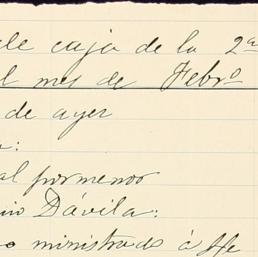 de caja de la 2ª
l mes de Febrº
de ayer
:
al pormenor
nio Dávila:
o ministrado á